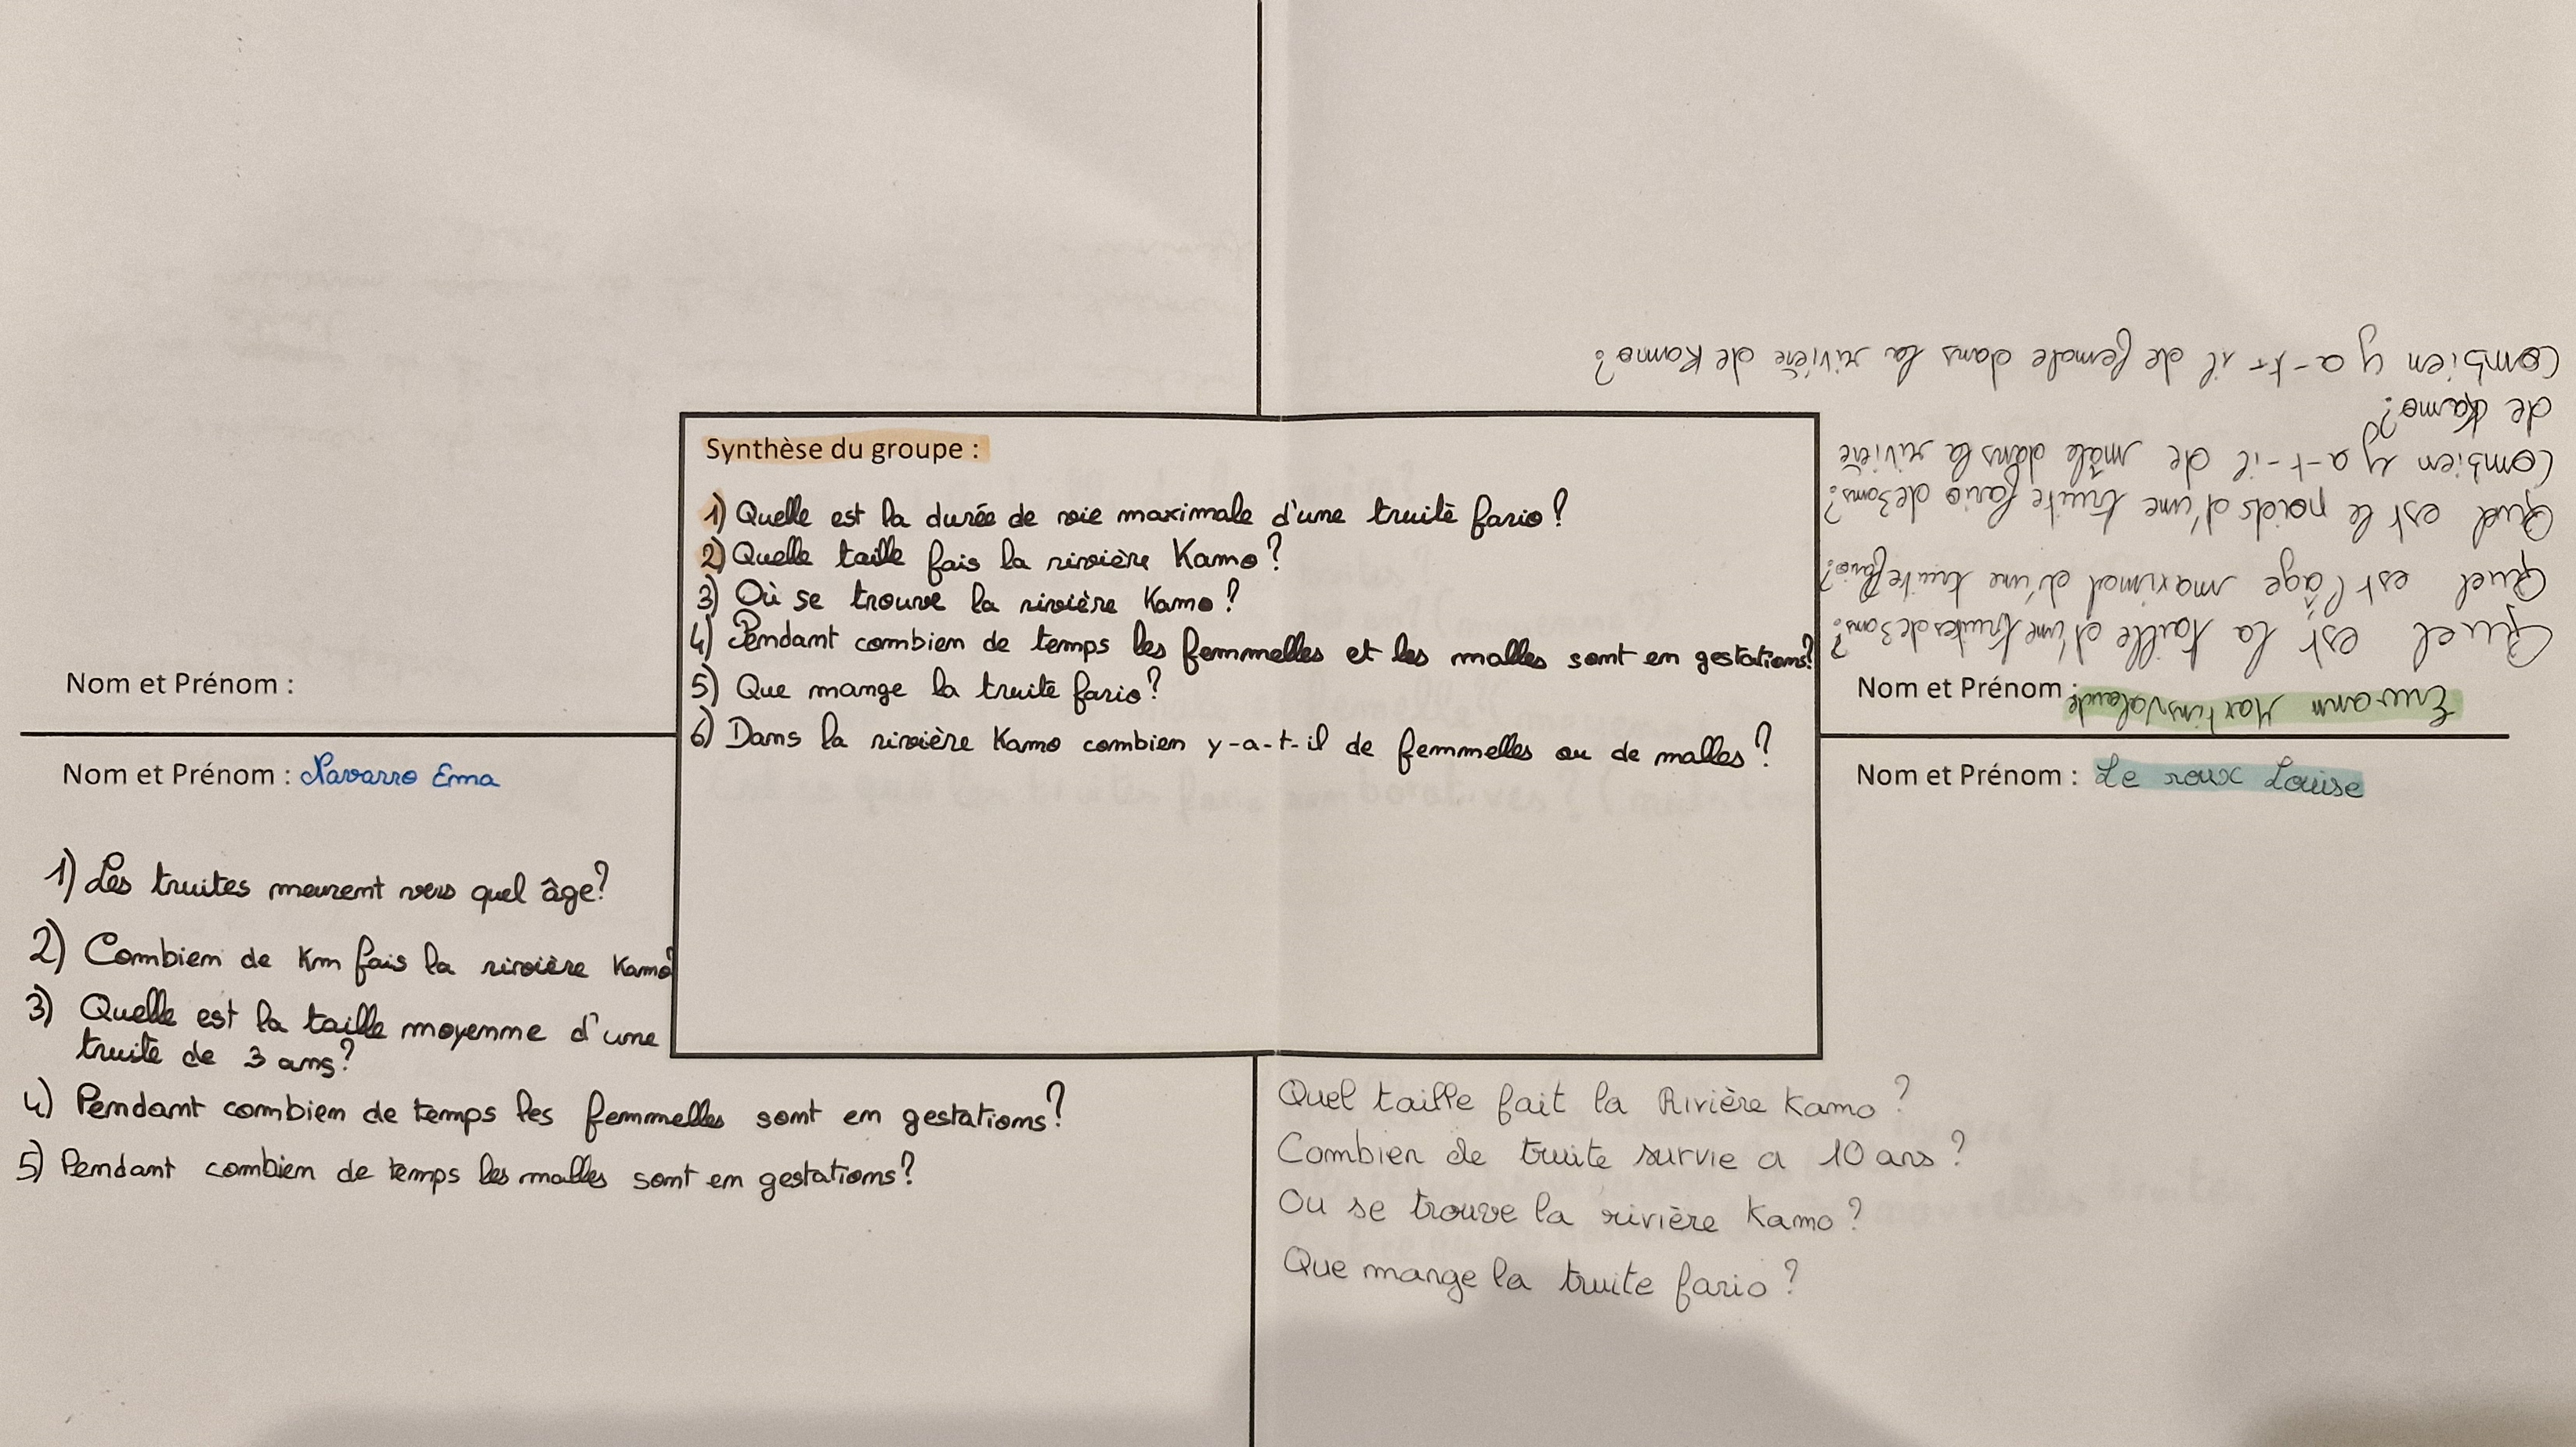 Nom et Prénom :
Combien y a-t-il de female dans la rivière de Kamo?
de Kamo?
Combien y a-t-il de mâle dans la rivière
Quel est le poids d'une truite fario de 3ans?
Quel est l'âge maximal d'une truite fario?
Quel est la taille d'une truites de 3ans?
Nom et Prénom : Erwann Martins Valaude
Synthèse du groupe :
1) Quelle est la durée de vie maximale d'une truite fario?
2) Quelle taille fais la rivière Kamo?
3) Où se trouve la rivière Kamo?
4) Pendant combien de temps les femmelles et les malles sont en gestations?
5) Que mange la truite fario?
6) Dans la rivière Kamo combien y-a-t-il de femmelles ou de malles?
Nom et Prénom : Navarro Ema
1) Les truites meurent vers quel âge?
2) Combien de Km fais la rivière Kamo?
3) Quelle est la taille moyenne d'une
truite de 3 ans?
4) Pendant combien de temps les femmelles sont en gestations?
5) Pendant combien de temps les malles sont en gestations?
Nom et Prénom : Le roux Louise
Quel taille fait la Rivière Kamo?
Combien de truite survie a 10 ans?
Ou se trouve la rivière Kamo?
Que mange la truite fario?